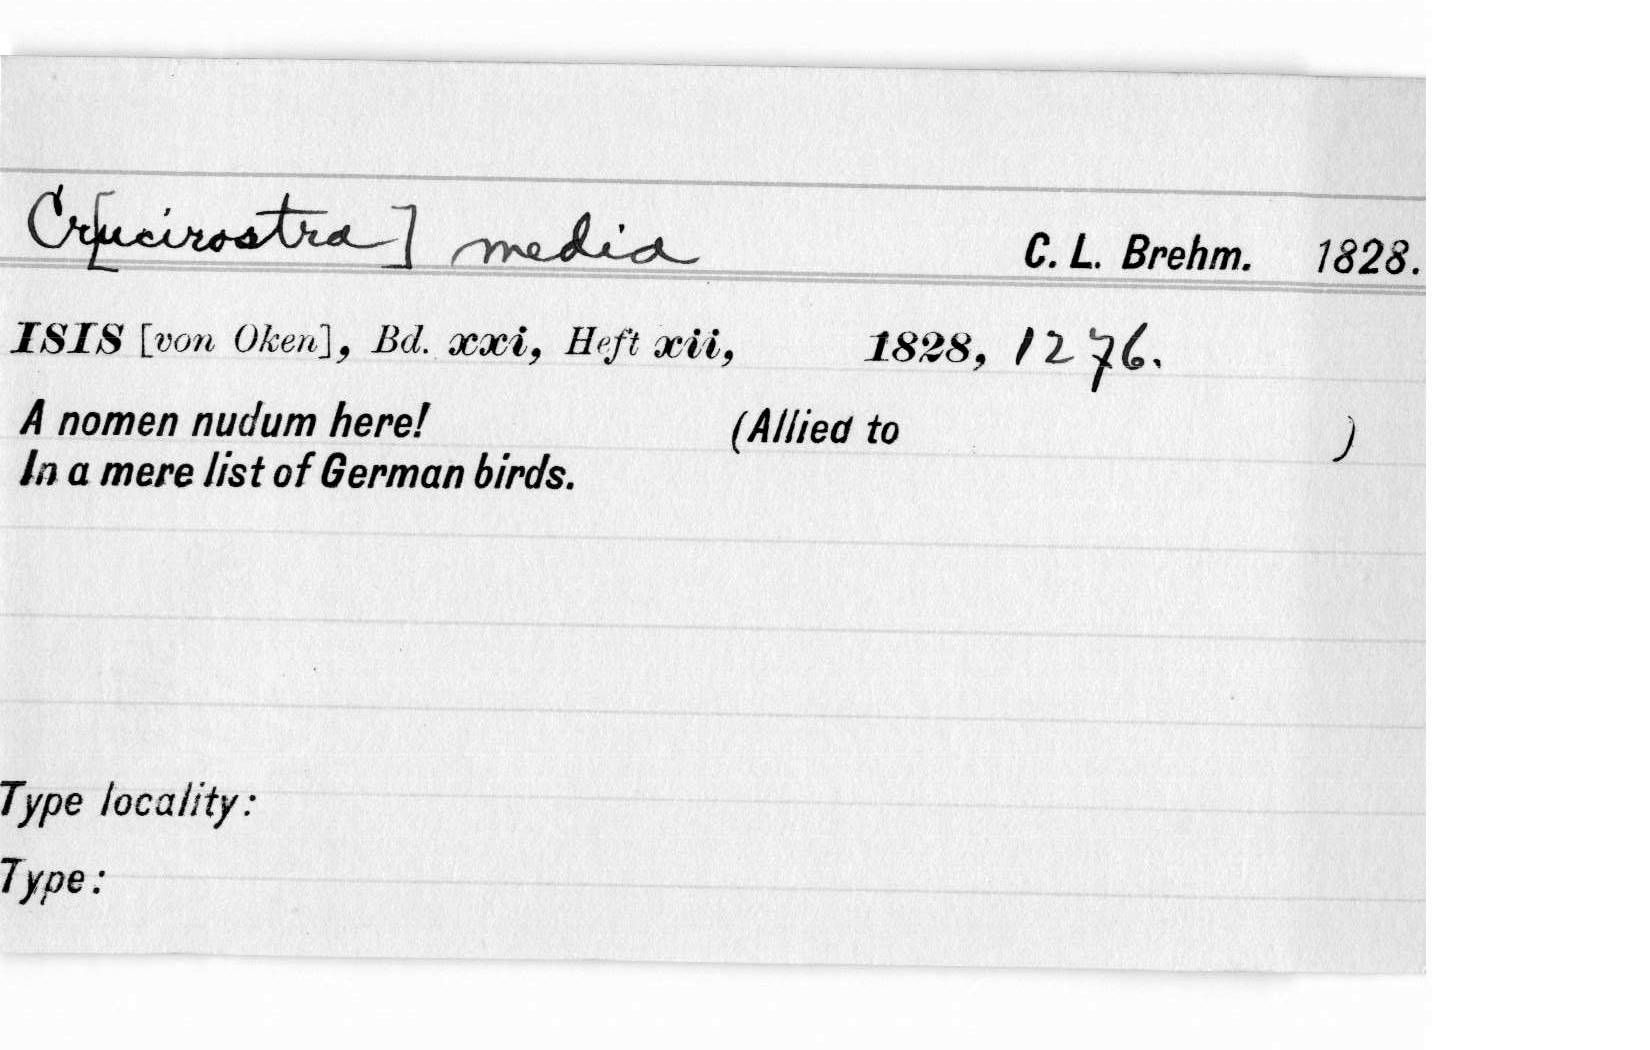 Cr[ucirostra] media C. L. Brehm. 1828.
ISIS [von Oken], Bd. xxi, Heft xii, 1828, 1276.
A nomen nudum here! (Allied to )
In a mere list of German birds.
Type locality:
Type: